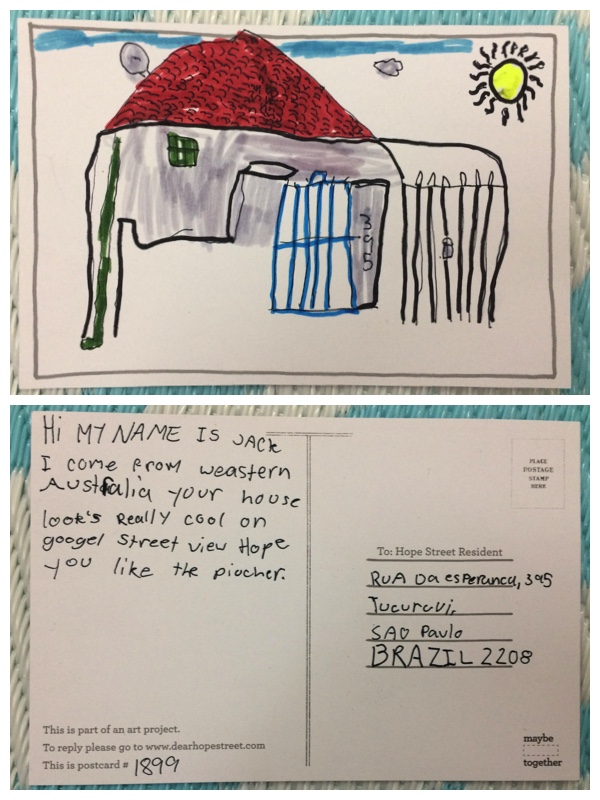 395
Hi MY NAME IS JACK
I come from weastern
Australia your house
look's Really cool on
googel street view Hope
you like the piocher.
This is part of an art project.
To reply please go to www.dearhopestreet.com
This is postcard # 1899
PLACE
POSTAGE
STAMP
HERE
To: Hope Street Resident
RUA Da esperanca, 395
Tucuruvi,
SAO Paulo
BRAZIL 2208
maybe
together